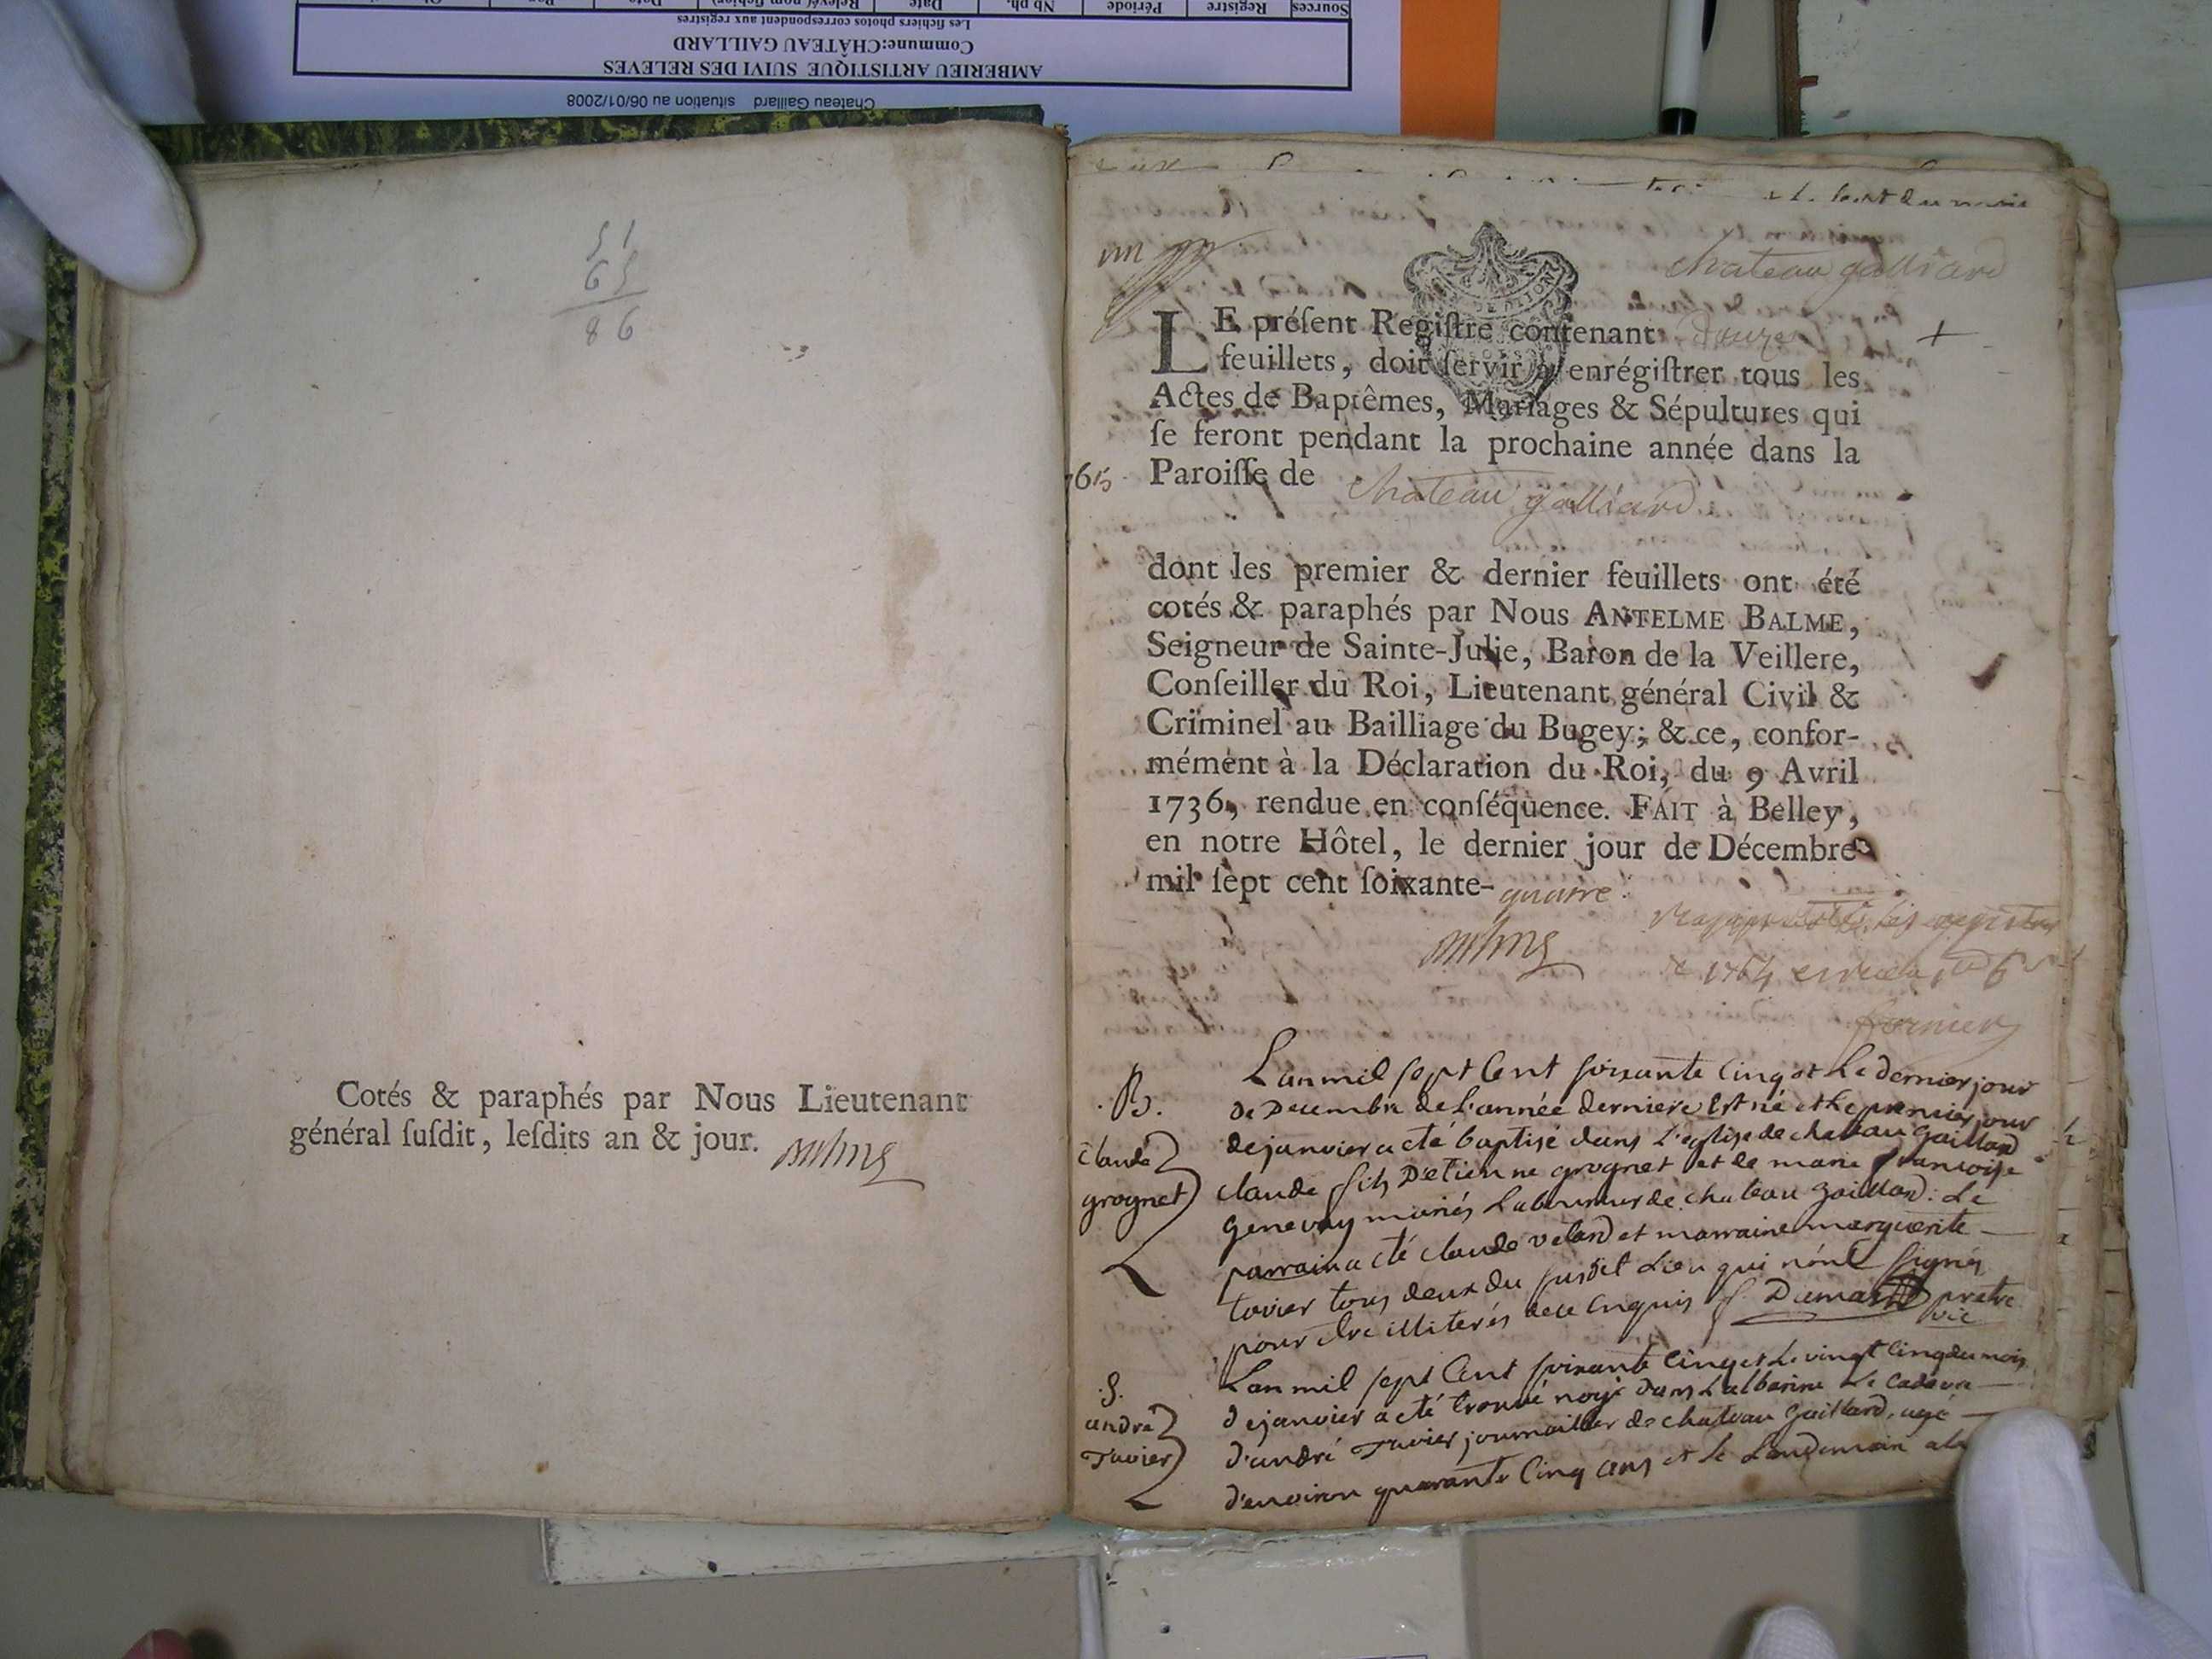 Sources Registre Période Nb ph. Date Relevé(nom fichier) Date
Les fichiers photos correspondent aux registres
Commune:CHÂTEAU GAILLARD
AMBERIEU ARTISTIQUE SUIVI DES RELEVES
Chateau Gaillard situation au 06/01/2008
51
65
86
Cotés & paraphés par Nous Lieutenant
général ſuſdit, leſdits an & jour.
un
chateau galliard
LE préſent Regiſtre contenant douze
feuillets, doit ſervir à enrégiſtrer tous les
Actes de Baptêmes, Mariages & Sépultures qui
ſe feront pendant la prochaine année dans la
Paroiſſe de chateau galliard
dont les premier & dernier feuillets ont été
cotés & paraphés par Nous ANTELME BALME,
Seigneur de Sainte-Julie, Baron de la Veillere,
Conſeiller du Roi, Lieutenant général Civil &
Criminel au Bailliage du Bugey; & ce, confor-
mément à la Déclaration du Roi, du 9 Avril
1736, rendue en conſéquence. FAIT à Belley,
en notre Hôtel, le dernier jour de Décembre
mil ſept cent ſoixante-quatre
de 1764
.B.
claude
grognet
L'an mil sept Cent soixante Cinq et Le dernier jour
de Decembre de L'année derniere Est né et Le premier jour
de janvier a eté baptisé dans L'eglise de chateau gaillard
claude fils D'etienne grognet et de marie francoise
genevay mariés Laboureurs de chateau gaillard. Le
parrain a eté claude velard et marraine marguerite
tavier tous deux du susdit Lieu qui n'ont signés
pour etre illiterés de ce Enquis Dumarest pretre
vic
.S.
andré
Tavier
L'an mil sept Cent soixante Cinq et Le vingt Cinq du mois
de janvier a eté trouvé noyé dans L'albarine Le Cadavre
d'andré Tavier journaillier de chateau gaillard, agé
d'environ quarante Cinq ans et Le Landemain a